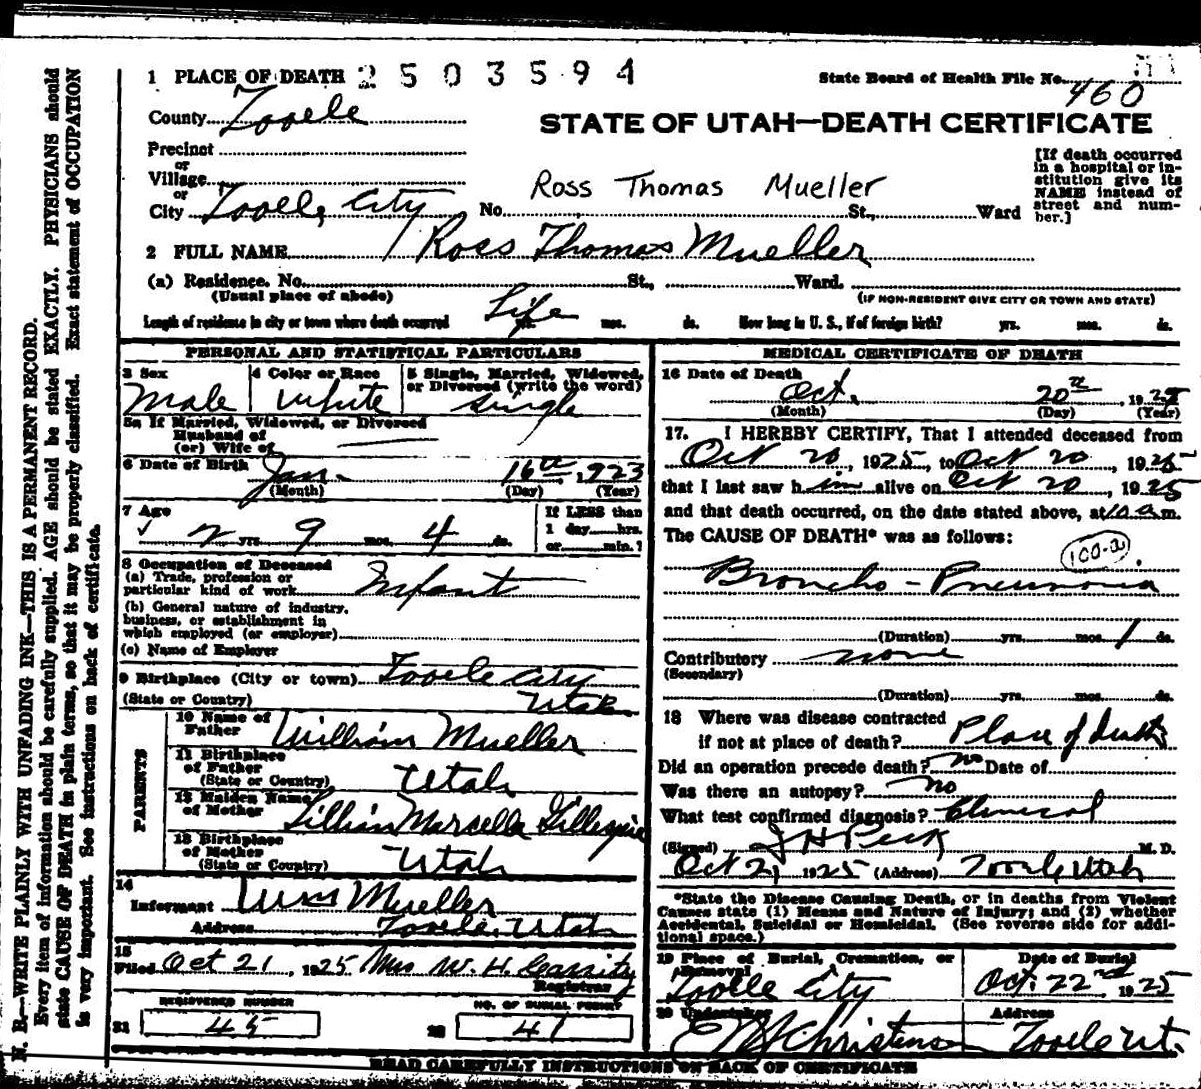 1 PLACE OF DEATH 2503594
State Board of Health File No. 460
County Tooele
STATE OF UTAH—DEATH CERTIFICATE
Precinct
or
Village
or
City Tooele City No. St., Ward
Ross Thomas Mueller
[If death occurred
in a hospital or in-
stitution give its
NAME instead of
street and num-
ber.]
2 FULL NAME Ross Thomas Mueller
(a) Residence. No. St., Ward.
(Usual place of abode)
(IF NON-RESIDENT GIVE CITY OR TOWN AND STATE)
Length of residence in city or town where death occurred Life yrs. mos. ds. How long in U. S., if of foreign birth? yrs. mos. ds.
PERSONAL AND STATISTICAL PARTICULARS
3 Sex
Male
4 Color or Race
White
5 Single, Married, Widowed,
or Divorced (write the word)
Single
5a If Married, Widowed, or Divorced
Husband of
(or) Wife of
6 Date of Birth Jan. 16th 1923
(Month) (Day) (Year)
7 Age
2 yrs. 9 mos. 4 ds.
If LESS than
1 day hrs.
or min.?
8 Occupation of Deceased
(a) Trade, profession or
particular kind of work Infant
(b) General nature of industry,
business, or establishment in
which employed (or employer)
(c) Name of Employer
9 Birthplace (City or town) Tooele City
(State or Country) Utah
PARENTS
10 Name of
Father William Mueller
11 Birthplace
of Father
(State or Country) Utah
12 Maiden Name
of Mother Lillian Marcella Gillespie
13 Birthplace
of Mother
(State or Country) Utah
14
Informant Wm Mueller
Address Tooele, Utah
15
Filed Oct 21, 1925 Mrs W. H. Cassity
Registrar
REGISTERED NUMBER
21 45
NO. OF BURIAL PERMIT
22 41
MEDICAL CERTIFICATE OF DEATH
16 Date of Death
Oct. 20th, 1925
(Month) (Day) (Year)
17. I HEREBY CERTIFY, That I attended deceased from
Oct 20, 1925, to Oct 20, 1925
that I last saw him alive on Oct 20, 1925
and that death occurred, on the date stated above, at 10 a.m.
The CAUSE OF DEATH* was as follows:
100-a
Broncho-Pneumonia
(Duration) yrs. mos. 1 ds.
Contributory none
(Secondary)
(Duration) yrs. mos. ds.
18 Where was disease contracted
if not at place of death? Place of death
Did an operation precede death? no Date of
Was there an autopsy? no
What test confirmed diagnosis? Clinical
(Signed) J H Peck M. D.
Oct 21 1925 (Address) Tooele Utah
*State the Disease Causing Death, or in deaths from Violent
Causes state (1) Means and Nature of Injury; and (2) whether
Accidental, Suicidal or Homicidal. (See reverse side for addi-
tional space.)
19 Place of Burial, Cremation, or
Removal
Tooele City
Date of Burial
Oct. 22nd, 1925
20 Undertaker
Christensen
Address
Tooele Ut.
READ CAREFULLY INSTRUCTIONS ON BACK OF CERTIFICATE
N. B.—WRITE PLAINLY WITH UNFADING INK—THIS IS A PERMANENT RECORD.
Every item of information should be carefully supplied. AGE should be stated EXACTLY. PHYSICIANS should
state CAUSE OF DEATH in plain terms, so that it may be properly classified. Exact statement of OCCUPATION
is very important. See instructions on back of certificate.